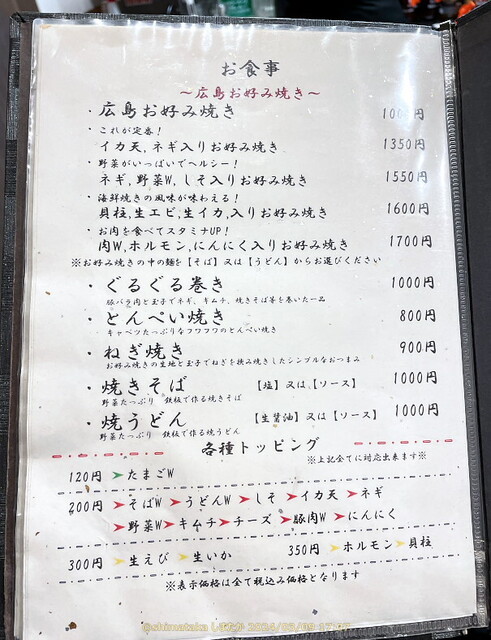 お食事
～広島お好み焼き～
・広島お好み焼き 1000円
・これが定番！
イカ天,ネギ入りお好み焼き 1350円
・野菜がいっぱいでヘルシー！
ネギ,野菜W,しそ入りお好み焼き 1550円
・海鮮焼きの風味が味わえる！
貝柱,生エビ,生イカ,入りお好み焼き 1600円
・お肉を食べてスタミナUP！
肉W,ホルモン,にんにく入りお好み焼き 1700円
※お好み焼きの中の麺を【そば】又は【うどん】からお選びください
・ぐるぐる巻き 1000円
豚バラ肉と玉子でネギ、キムチ、焼きそば等を巻いた一品
・とんぺい焼き 800円
キャベツたっぷりなフワフワのとんぺい焼き
・ねぎ焼き 900円
お好み焼きの生地と玉子でねぎを挟み焼きしたシンプルなおつまみ
・焼きそば 【塩】又は、【ソース】 1000円
野菜たっぷり 鉄板で作る焼きそば
・焼うどん 【生醤油】又は【ソース】 1000円
野菜たっぷり 鉄板で作る焼うどん
各種トッピング
※上記全てに対応出来ます※
120円 ➤たまごW
200円 ➤そばW ➤うどんW ➤しそ ➤イカ天 ➤ネギ
➤野菜W ➤キムチ ➤チーズ ➤豚肉W ➤にんにく
300円 ➤生えび ➤生いか 350円 ➤ホルモン ➤貝柱
※表示価格は全て税込み価格となります
@shimataka しまたか 2024/06/09 17:07